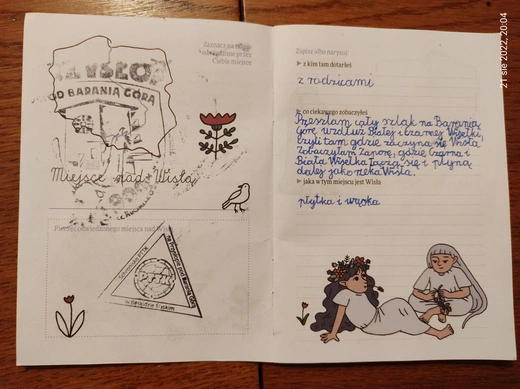 Zaznacz na mapie
odwiedzone przez
Ciebie miejsce
POD BARANIĄ GÓRĄ
Miejsce nad Wisłą
Pieczęć odwiedzonego miejsca nad Wisłą
PTTK
w Beskidzie Śląskim
Zapisz albo narysuj!
z kim tam dotarłeś
z rodzicami
co ciekawego zobaczyłeś
Przeszłam cały szlak na Baranią
Górę wzdłuż Białej i Czarnej Wisełki,
czyli tam gdzie zaczyna się Wisła
Zobaczyłam Zaporę, gdzie Czarna i
Biała Wisełka łączą się i płyną
dalej jako rzeka Wisła.
jaka w tym miejscu jest Wisła
płytka i wąska
21 sie 2022, 20:04